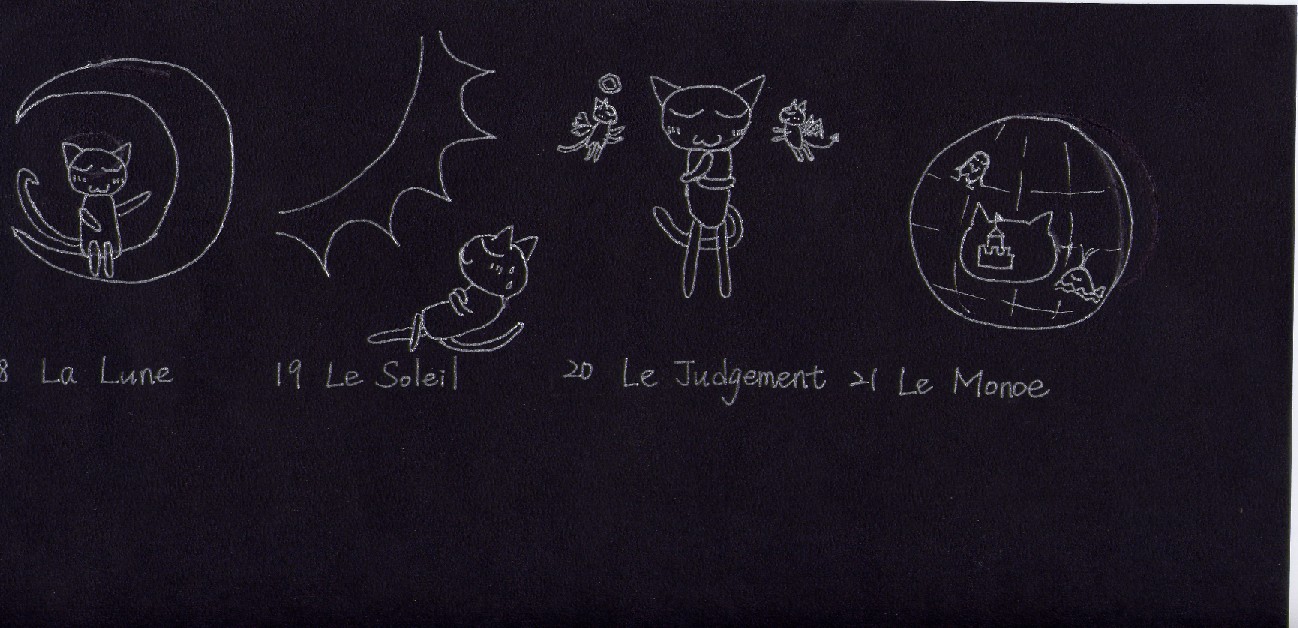 8 La Lune
19 Le Soleil
20 Le Judgement
21 Le Monde